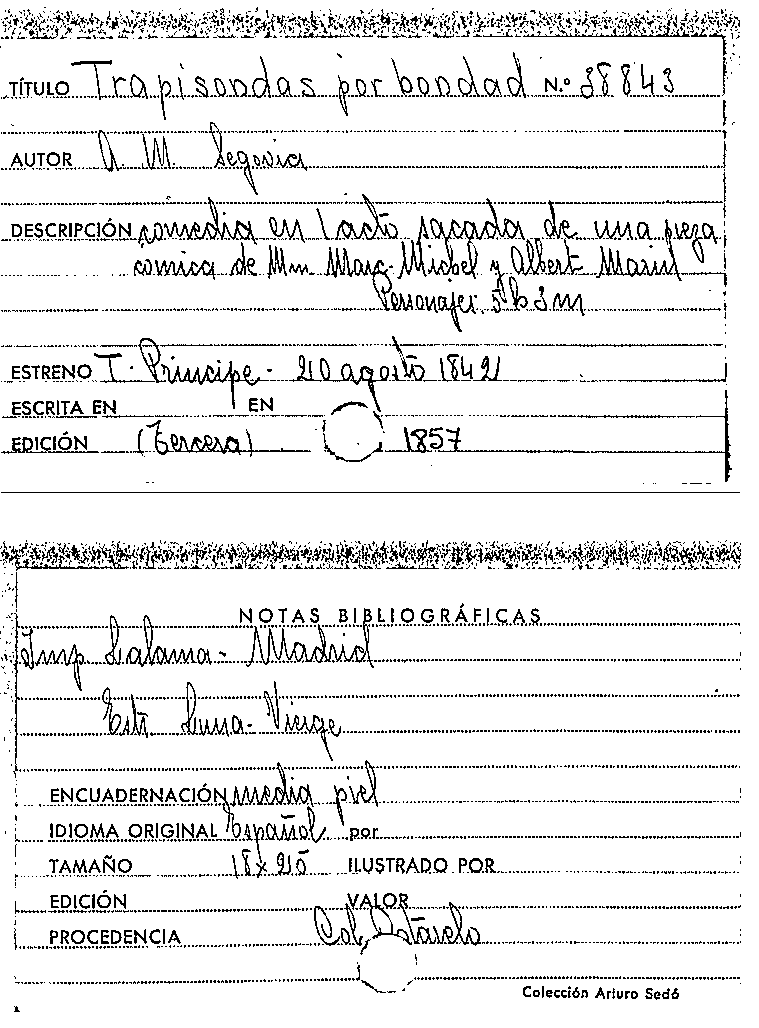 TÍTULO Trapisondas por bondad N.º 38843
AUTOR A. M. Segovia
DESCRIPCIÓN comedia en 1 acto sacada de una pieza
cómica de Mm Marc-Michel y Albert
Personajes 5h 3m
ESTRENO T. Principe - 20 agosto 1842
ESCRITA EN EN
EDICIÓN (Tercera) 1857
NOTAS BIBLIOGRÁFICAS
Imp Lalama - Madrid
Luna-
ENCUADERNACIÓN media piel
IDIOMA ORIGINAL Español por
TAMAÑO 18 x ILUSTRADO POR
EDICIÓN VALOR
PROCEDENCIA Col. Cotarelo
Colección Arturo Sedó